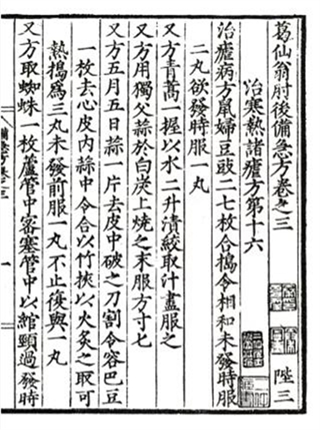 葛仙翁肘後備急方卷之三
陛三
治寒熱諸瘧方第十六
治瘧病方鼠婦豆豉二七枚合搗令相和未發時服
二丸欲發時服一丸
又方青蒿一握以水二升漬絞取汁盡服之
又方用獨父蒜於白炭上燒之末服方寸匕
又方五月五日蒜一片去皮中破之刀割令容巴豆
一枚去心皮内蒜中令合以竹挾以火炙之取可
熱搗爲三丸未發前服一丸不止復與一丸
又方取蜘蛛一枚蘆管中密塞管中以綰頸過發時